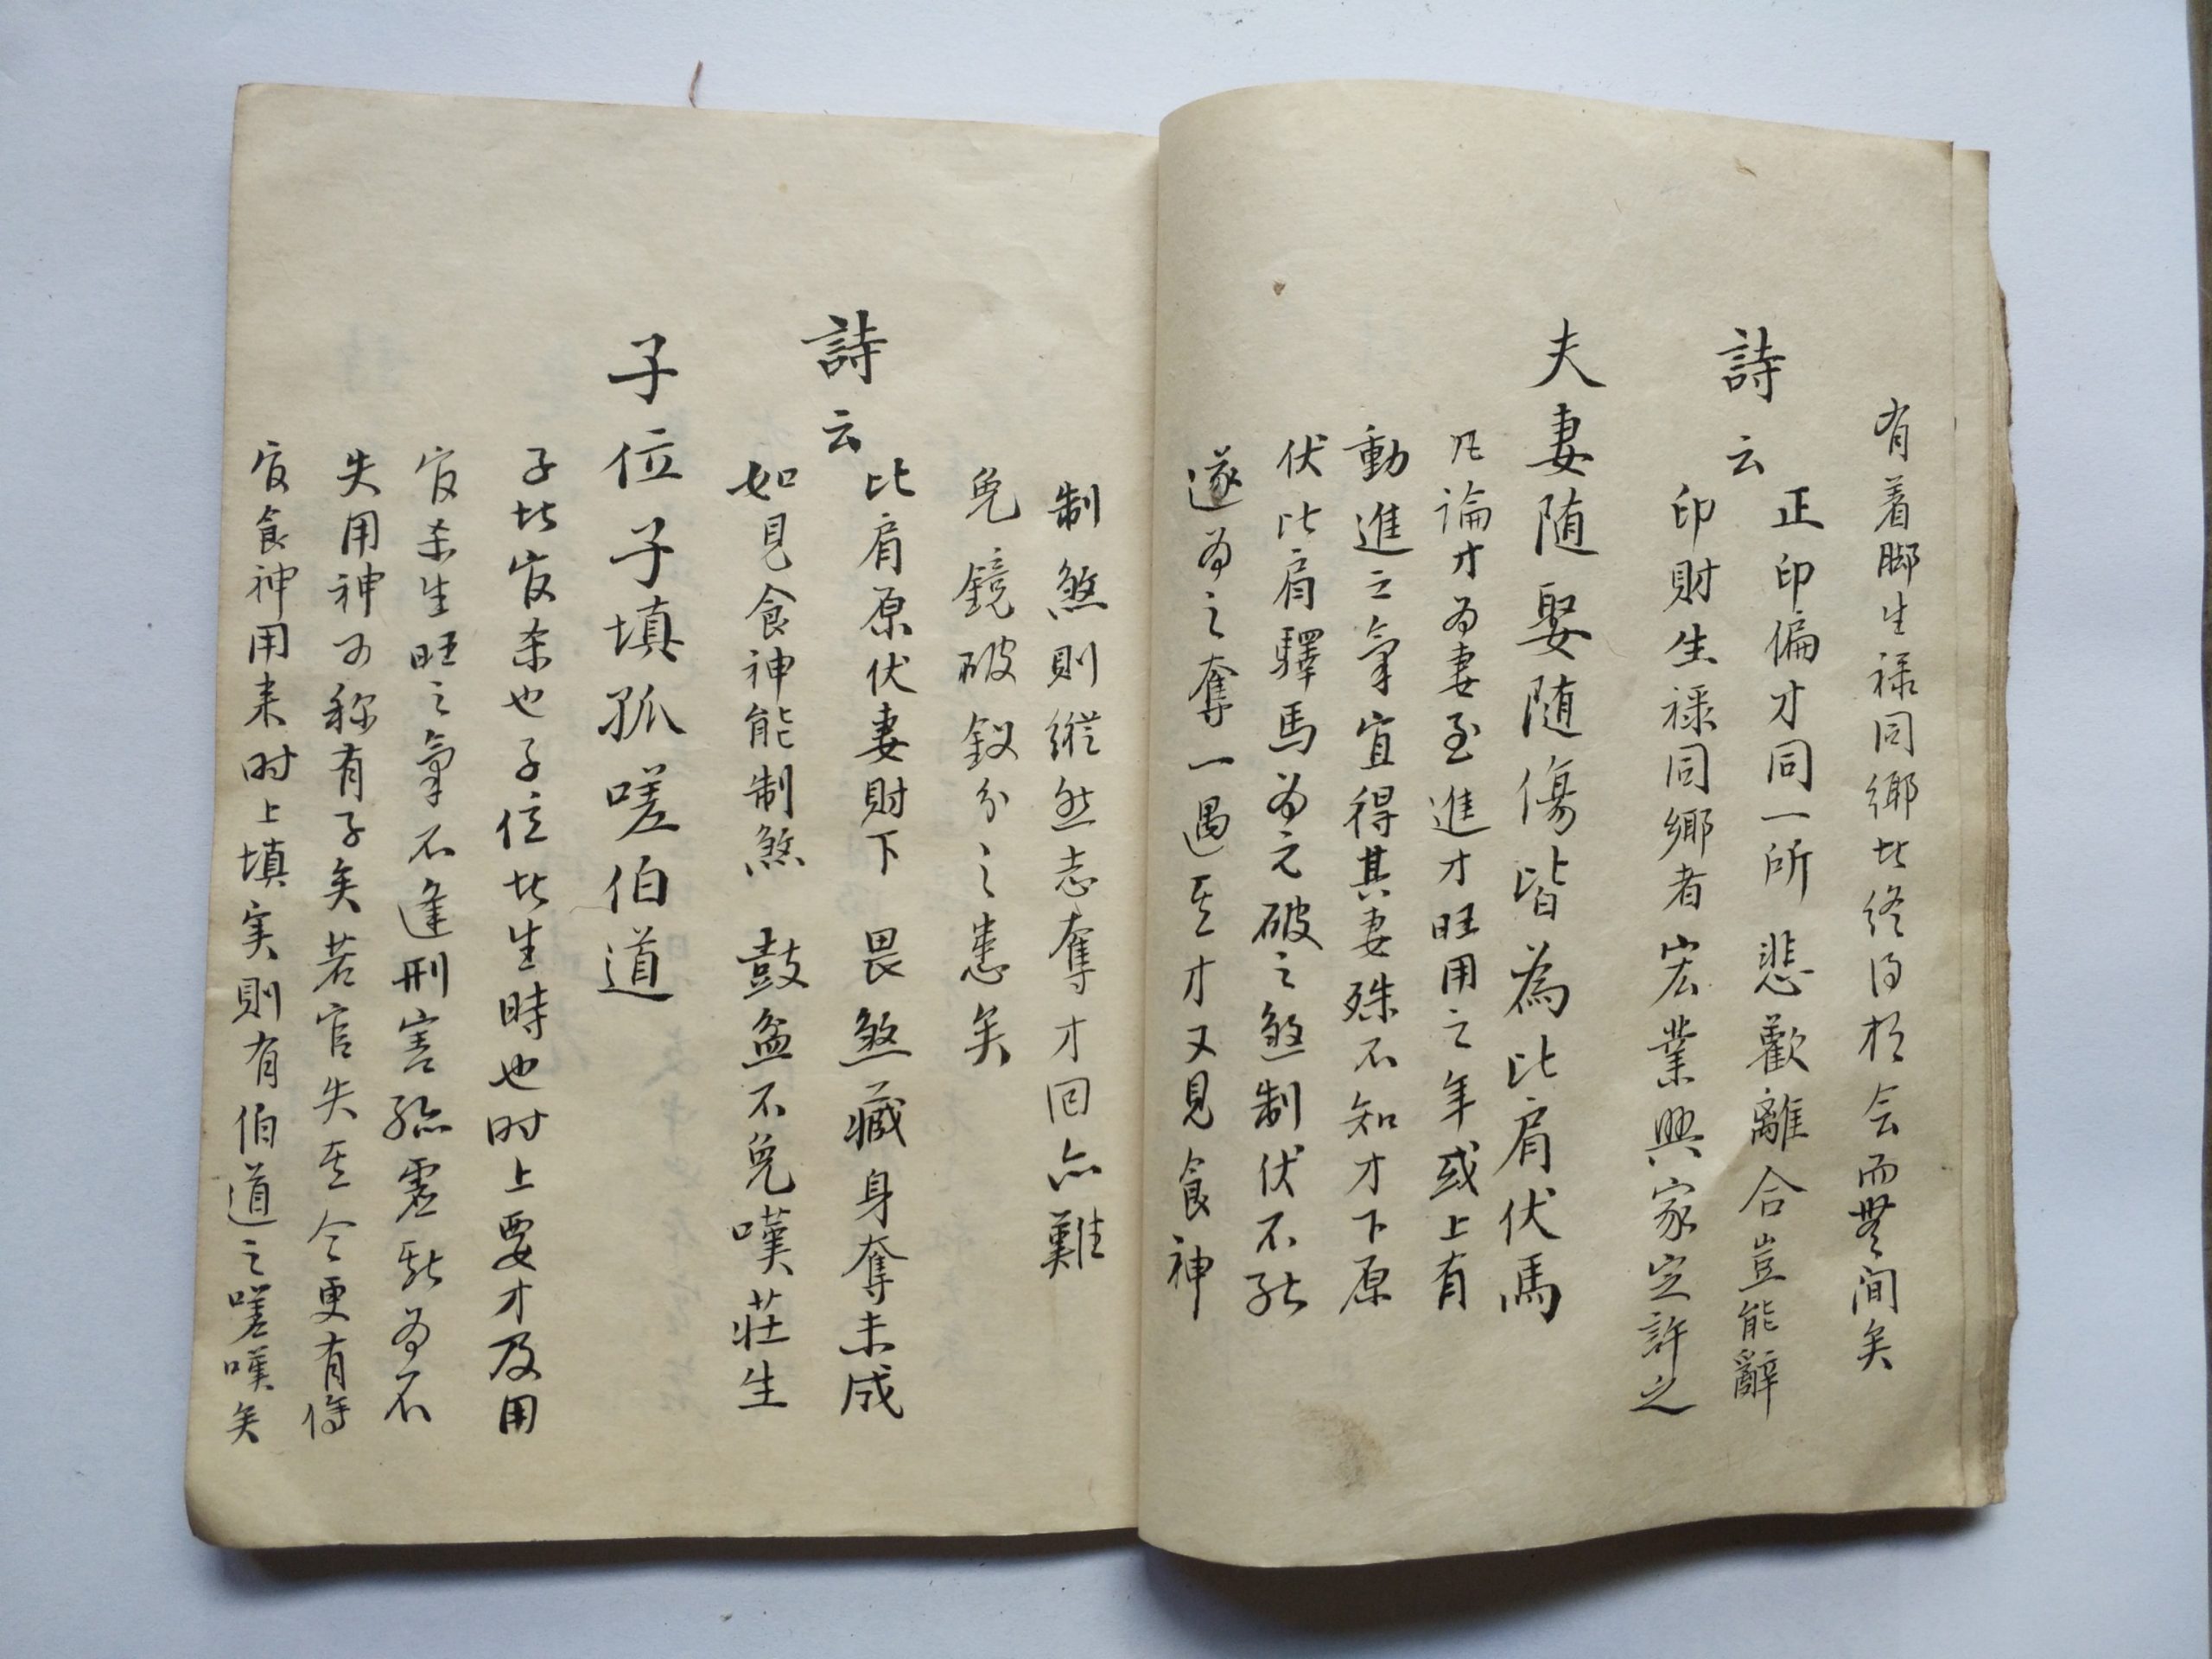 有着脚生禄同鄉 終得相会而無间矣
詩云
正印偏才同一所 悲歡離合豈能辭
印財生禄同鄉者 宏業興家定許之
夫妻随娶随傷皆為比肩伏馬
凡論才为妻至進才旺用之年或上有
動進之氣宜得其妻殊不知才下原
伏比肩驛馬为元破之煞制伏不能
遂为之奪一遇至才又見食神
制煞則縱然志奪才回亦難
免鏡破釵分之患矣
詩云
比肩原伏妻財下 畏煞藏身奪未成
如見食神能制煞 鼓盆不免嘆莊生
子位子填孤嗟伯道
子 官杀也子位 生時也时上要才及用
官杀生旺之氣不逢刑害 為不
失用神 称有子矣若官失 令更有傷
官食神用来时上填实則有伯道之嗟嘆矣